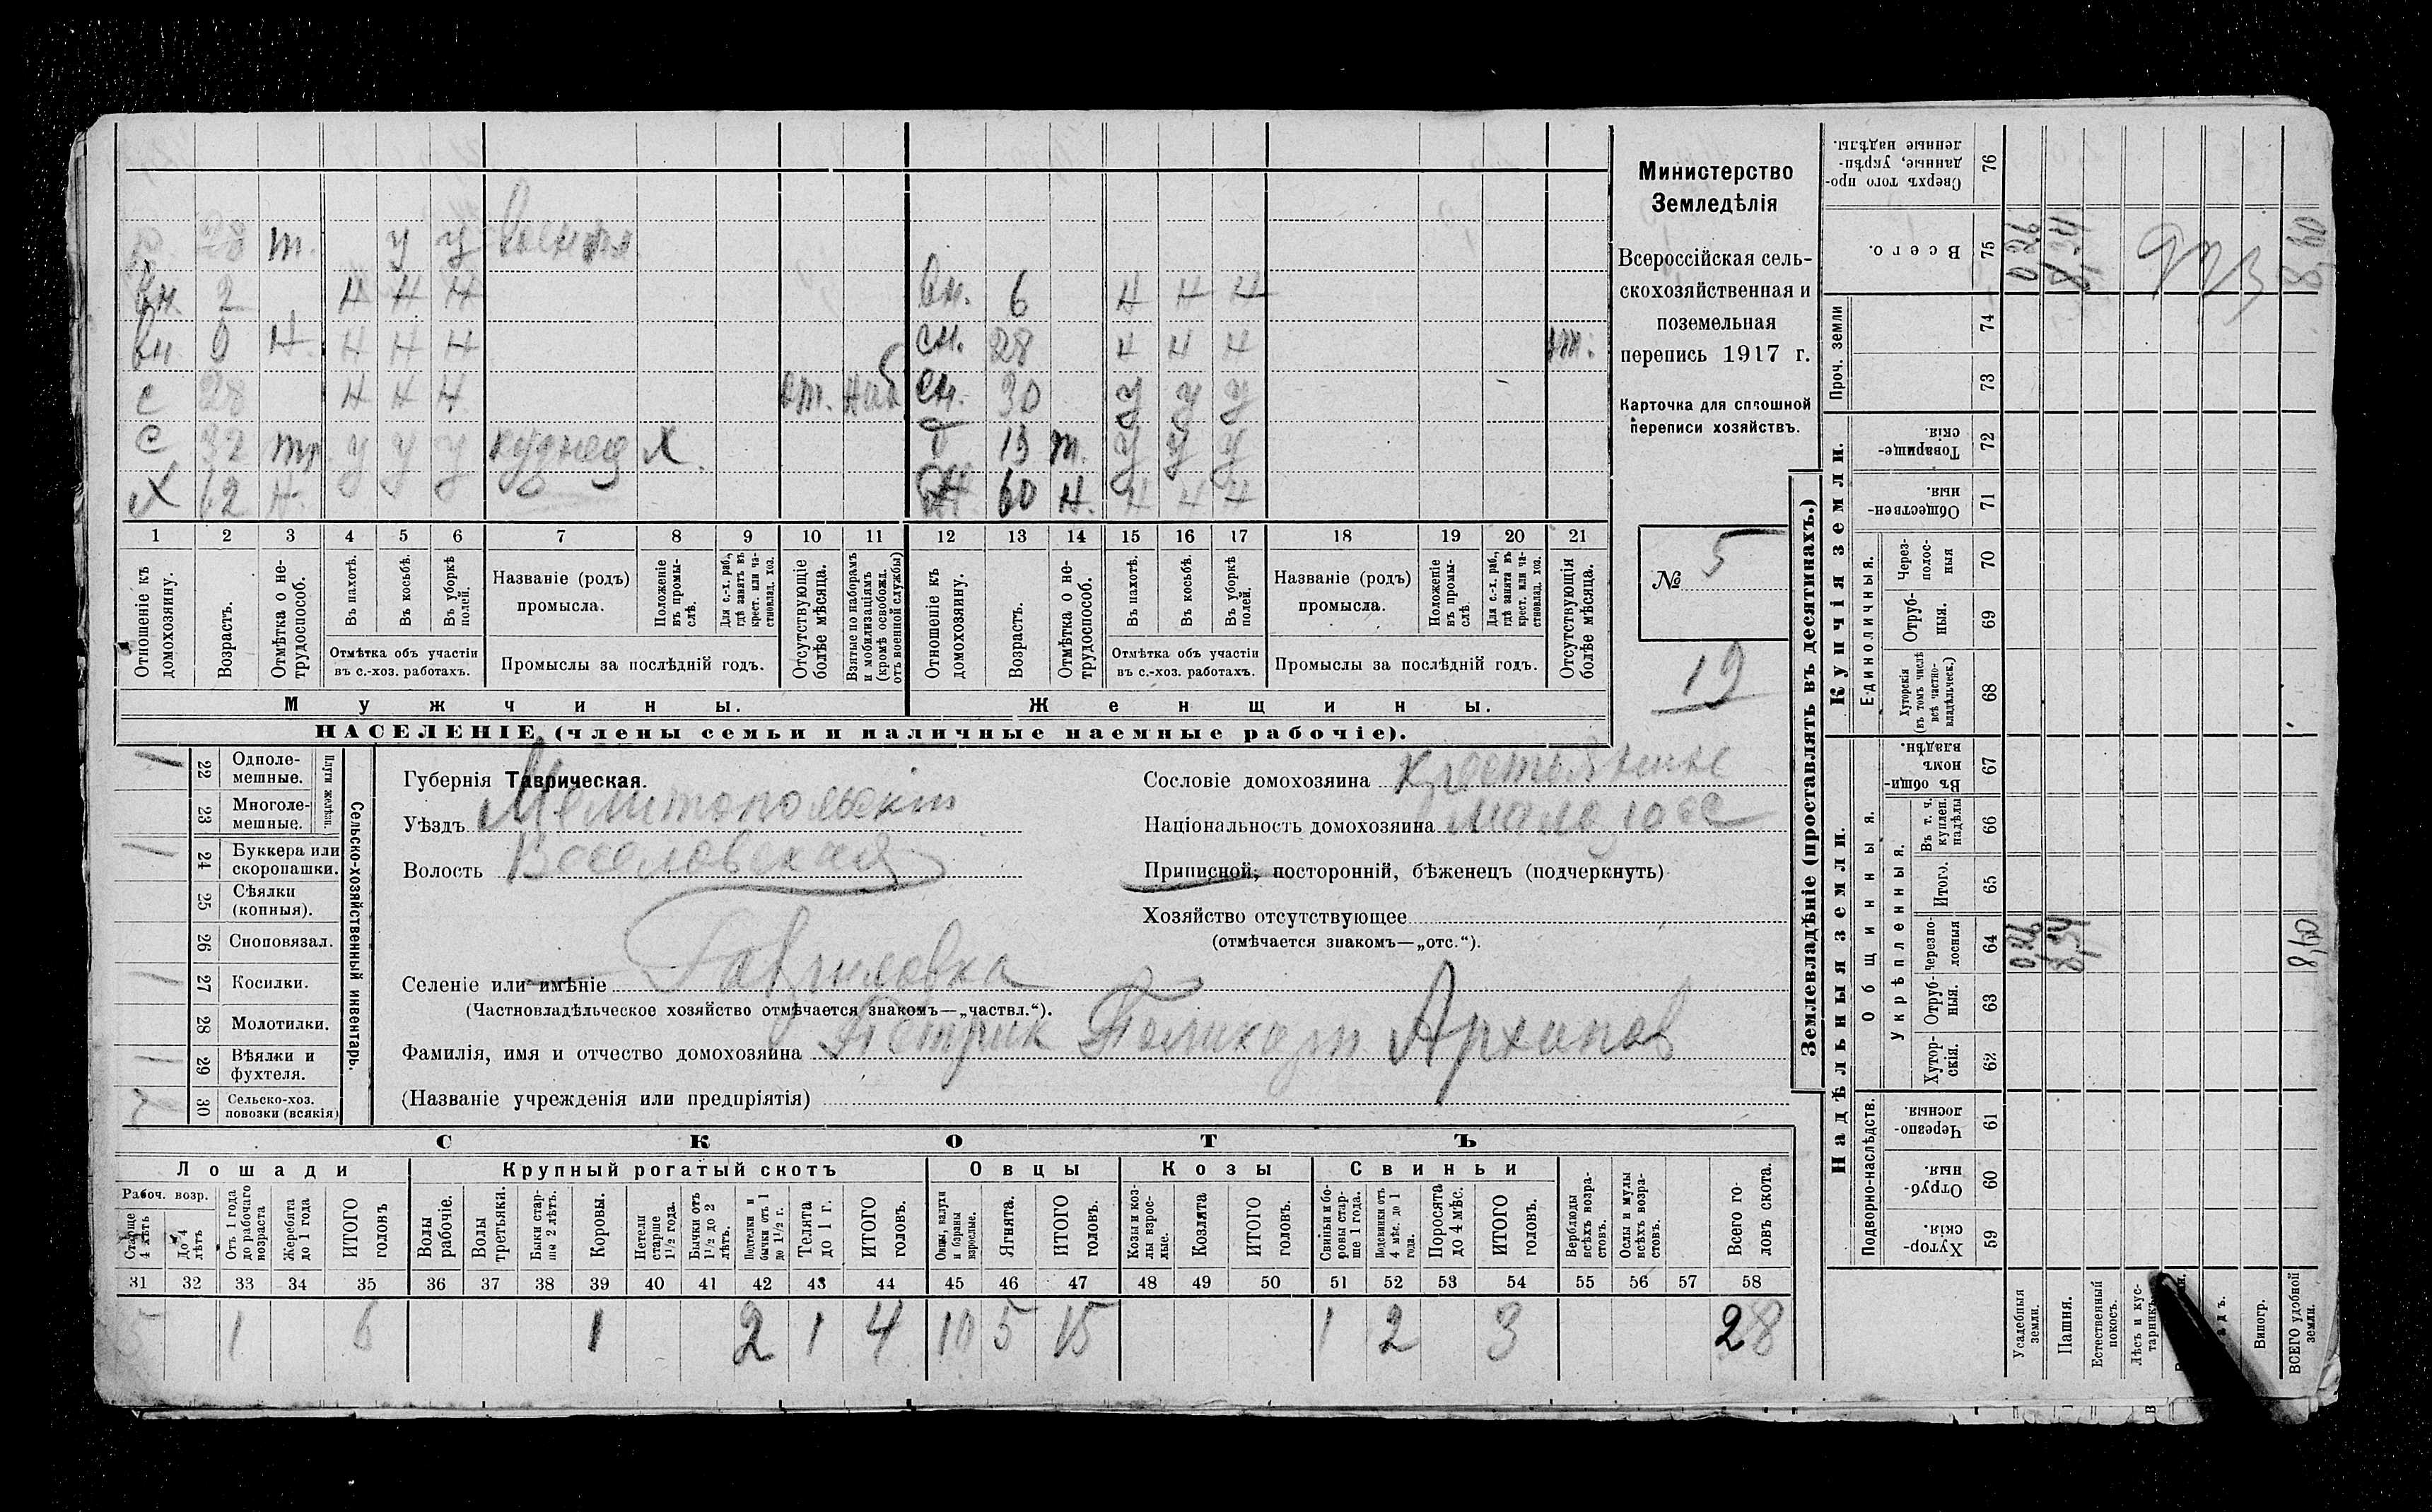 р. 28 т. у у
вн. 2 н н н вн. 6 н н н
вн 0 н. н н н сн. 28 н н н от.
с 28 н н н от. наб сн. 30 у у у
с 32 у у у кузнец х. 13 т. у у у
х 62 н. у у у 60 н. н н н
1 2 3 4 5 6 7 8 9 10 11 12 13 14 15 16 17 18 19 20 21
Отношеніе къ домохозяину.
Возрастъ.
Отмѣтка о нетрудоспособ.
Въ пахотѣ.
Въ косьбѣ.
Въ уборкѣ полей.
Отмѣтка объ участіи
въ с.-хоз. работахъ.
Названіе (родъ)
промысла.
Положеніе въ промыслѣ.
Для с.-х. раб., гдѣ занятъ въ крест. или частновлад. хоз.
Промыслы за послѣдній годъ.
Отсутствующіе болѣе мѣсяца.
Взятые по наборамъ и мобилизаціямъ (кромѣ освобожд. отъ военной службы)
Отношеніе къ домохозяину.
Возрастъ.
Отмѣтка о нетрудоспособ.
Въ пахотѣ.
Въ косьбѣ.
Въ уборкѣ полей.
Отмѣтка объ участіи
въ с.-хоз. работахъ.
Названіе (родъ)
промысла.
Положеніе въ промыслѣ.
Для с.-х. раб., гдѣ занята въ крест. или частновлад. хоз.
Промыслы за послѣдній годъ.
Отсутствующія болѣе мѣсяца.
Мужчины. Женщины.
НАСЕЛЕНІЕ (члены семьи и наличные наемные рабочіе).
Министерство
Земледѣлія
Всероссійская сель-
скохозяйственная и
поземельная
перепись 1917 г.
Карточка для сплошной
переписи хозяйствъ.
№ 5
19
Сельско-хозяйственный инвентарь.
Плуги желѣзн.
1 22 Одноле-
мешные.
23 Многоле-
мешные.
1 24 Буккера или
скоропашки.
25 Сѣялки
(конныя).
26 Сноповязал.
1 27 Косилки.
28 Молотилки.
1 29 Вѣялки и
фухтеля.
2 30 Сельско-хоз.
повозки (всякія)
Губернія Таврическая.
Уѣздъ Мелитопольскій
Волость Веселовская
Селеніе или имѣніе Гавриловка
(Частновладѣльческое хозяйство отмѣчается знакомъ—„частвл.“).
Фамилія, имя и отчество домохозяина Петрик Поликарп Архипов
(Названіе учрежденія или предпріятія)
Сословіе домохозяина
Національность домохозяина малоросс
Приписной, посторонній, бѣженецъ (подчеркнуть)
Хозяйство отсутствующее
(отмѣчается знакомъ—„отс.“).
СКОТЪ
Лошади Крупный рогатый скотъ Овцы Козы Свиньи
Рабоч. возр.
Старше 4 лѣтъ
До 4 лѣтъ
Отъ 1 года до рабочаго возраста
Жеребята до 1 года
ИТОГО головъ
Волы рабочіе.
Волы третьяки.
Быки старше 2 лѣтъ.
Коровы.
Нетели старше 1½ года.
Бычки отъ 1½ до 2 лѣтъ.
Подтелки и бычки отъ 1 до 1½ г.
Телята до 1 г.
ИТОГО головъ.
Овцы, валухи и бараны взрослые.
Ягнята.
ИТОГО головъ.
Козы и козлы взрослые.
Козлята
ИТОГО головъ.
Свиньи и боровы старше 1 года.
Подсвинки отъ 4 мѣс. до 1 года.
Поросята до 4 мѣс.
ИТОГО головъ.
Верблюды всѣхъ возрастовъ.
Ослы и мулы всѣхъ возрастовъ.
Всего головъ скота.
31 32 33 34 35 36 37 38 39 40 41 42 43 44 45 46 47 48 49 50 51 52 53 54 55 56 57 58
5 1 6 1 2 1 4 10 5 15 1 2 3 28
Землевладѣніе (проставлять въ десятинахъ.)
Купчія земли.
Надѣльныя земли.
Единоличныя.
Общинныя.
Укрѣпленныя.
Подворно-наслѣдств.
Сверхъ того проданные, укрѣпленные надѣлы. 76
Всего. 75 0,26 8,34 923 8,60
Проч. земли 74
73
Товарищескія. 72
Общественныя. 71
Черезполосныя 70
Отрубныя. 69
Хуторскія (въ томъ числѣ всѣ частновладѣльческ.) 68
Въ общинномъ владѣн. 67
Въ т. ч. куплен. надѣлы 66
Итого. 65
Черезполосныя 64 0,26 8,34 8,60
Отрубныя. 63
Хуторскія. 62
Черезполосныя. 61
Отрубныя. 60
Хуторскія. 59
Усадебныя земли.
Пашня.
Естественный покосъ.
Лѣсъ и кустарникъ
Виногр.
ВСЕГО удобной земли.